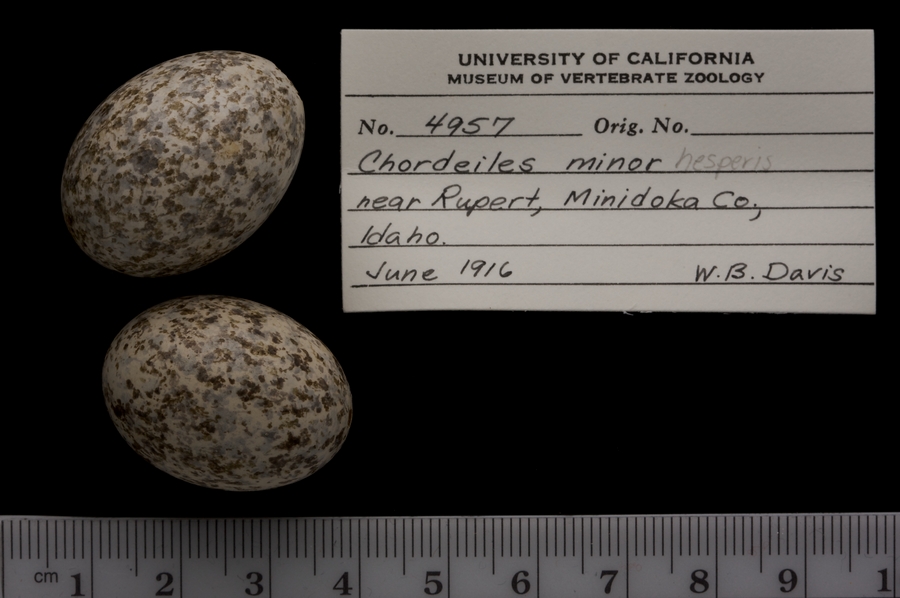 UNIVERSITY OF CALIFORNIA
MUSEUM OF VERTEBRATE ZOOLOGY
No. 4957 Orig. No.
Chordeiles minor hesperis
near Rupert, Minidoka Co.,
Idaho.
June 1916 W.B. Davis
cm 1 2 3 4 5 6 7 8 9 1